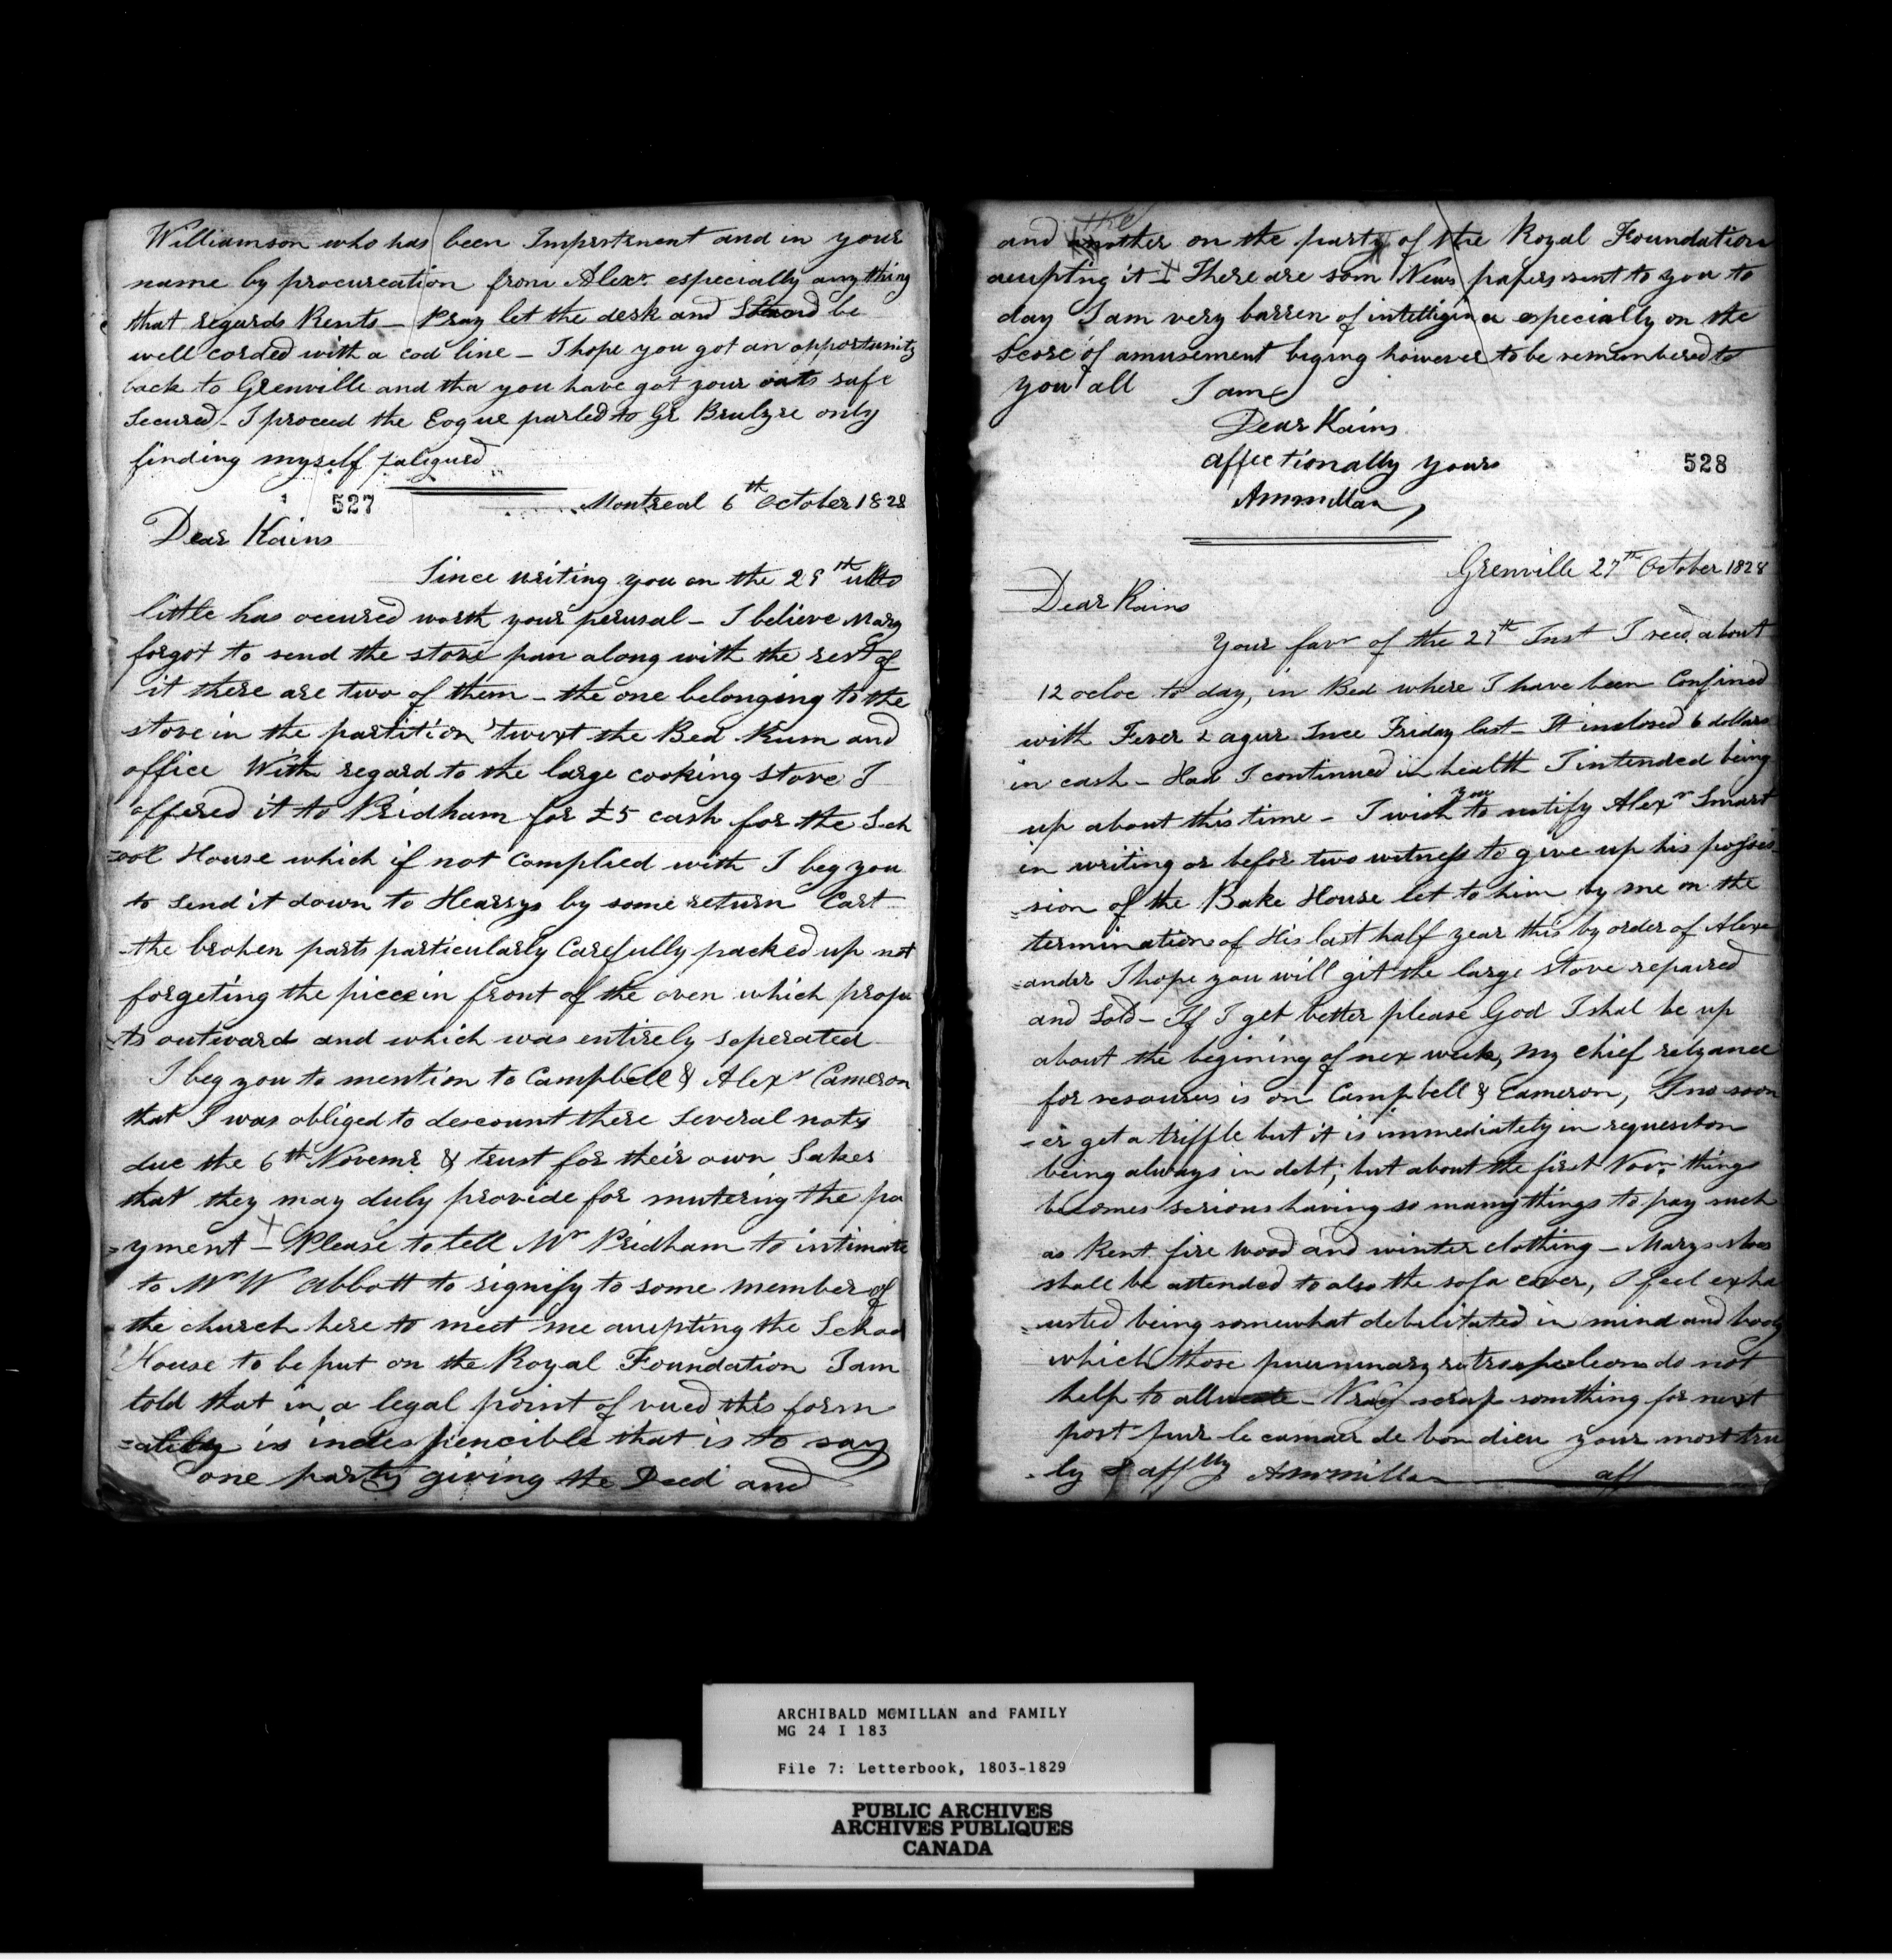 Williamson who has been Impertenent and in your
name by procureation from Alexr. especially any thing
that regards Rents — Pray let the desk and Stand be
well corded with a cod line — I hope you got an opportunity
back to Grenville and tha you have got your oats safe
Secured — I proceed the Eoque parled to Gr Brulyre only
finding myself fatigued
527
Montreal 6th October 1828
Dear Kains
Since writing you on the 29th ulto
little has occured worth your perusal — I believe Mary
forgot to send the stove pan along with the rest of
it there are two of them — the one belonging to the
stove in the partition 'twixt the Bed Rum and
office With regard to the large cooking stove I
offered it to Pridham for £5 cash for the Sch
=ool House which if not Complied with I beg you
to Send it down to Hearrys by some return Cart
the broken parts particularly Carefully packed up not
forgeting the piece in front of the oven which proje
=ts outward and which was entirely seperated
I beg you to mention to Campbell & Alexr Cameron
that I was obliged to descount there Several notes
due the 6th Novemr. & trust for their own Sakes
that they may duly provide for mutering the pa
=yment — Please to tell Mr Pridham to intimate
to Mr W Abbott to signify to some member of
the church here to meet me accepting the School
House to be put on the Royal Foundation I am
told that in a legal point of vued this form
=ality is indespencible that is to say
one party giving the Deed and
and the another on the party of the Royal Foundation
accepting it — There are som News papers sent to you to
day I am very barren of intelligince especially on the
Score of amusement biging however to be remembered to
you all I am
Dear Kains
affectionally yours
AMcmillan
528
Grenville 27th October 1828
Dear Kains
Your favr of the 27th Inst I reced about
12 ocloc to day, in Bed where I have been Confined
with Fever & ague Since Friday last — It inclosed 6 dollars
in cash — Had I continued in health I intended being
up about this time — I wish you to notify Alexr Smart
in writing or befor two witness to give up his posses
=sion of the Bake House let to him by me on the
termination of His last half year this by order of Alexa
=ander I hope you will git the large stove repaired
and Sold — If I get better please God I shal be up
about the begining of nex week, my chief relyance
for resources is on Campbell & Cameron, I no soon
=er get a triffle but it is immediately in requesiton
being always in debt; but about the first Novr. things
becomes serious having so many things to pay such
as Rent fire wood and winter clothing — Marys shoes
shall be attended to also the sofa cover, I feel exha
=usted being somewhat debilitated in mind and body
which those pecunnary retrospections do not
help to alleveate — Pray scrap somthing for next
post pur le camau de bon dieu your most tru
=ly & afftly AMcmillan aff
ARCHIBALD MCMILLAN and FAMILY
MG 24 I 183
File 7: Letterbook, 1803-1829
PUBLIC ARCHIVES
ARCHIVES PUBLIQUES
CANADA